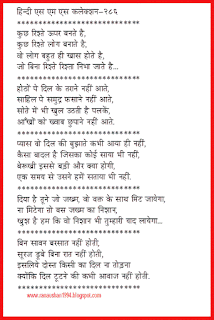 हिन्दी एस एम एस कलेक्शन-२८६
**********************************
कुछ रिश्ते ऊपर बनते है,
कुछ रिश्ते लोग बनाते है,
वो लोग बहुत ही खास होते है,
जो बिना रिश्ते रिश्ता निभा जाते है...
**********************************
होठों पे दिल के तराने नहीं आते,
साहिल पे समुद्र फसाने नहीं आते,
सोते में भी खुल उठती है पलके,
आँखों को ख्वाब छुपाने नहीं आते.
**********************************
प्यास वो दिल की बुझाने कभी आया ही नहीं,
कैसा बादल है जिसका कोई साया भी नहीं,
बेरूखी इससे बड़ी और क्या होगी,
एक समय से उसने हमें सताया भी नहीं.
**********************************
दिया है तुने जो जख्म, वो वक्त के साथ मिट जायेगा,
ना मिटेगा तो बस जख्म का निशान,
खुश है हम कि वो निशान भी तुम्हारी याद लायेगा...
**********************************
बिन सावन बरसात नहीं होती,
सूरज डुबे बिना रात नहीं होती,
इसलिये दोस्त किसी का दिल ना तोड़ना
क्योंकि दिल टुटने की कभी आवाज नहीं होती.
**********************************
www.rasoeshan1994.blogspot.com